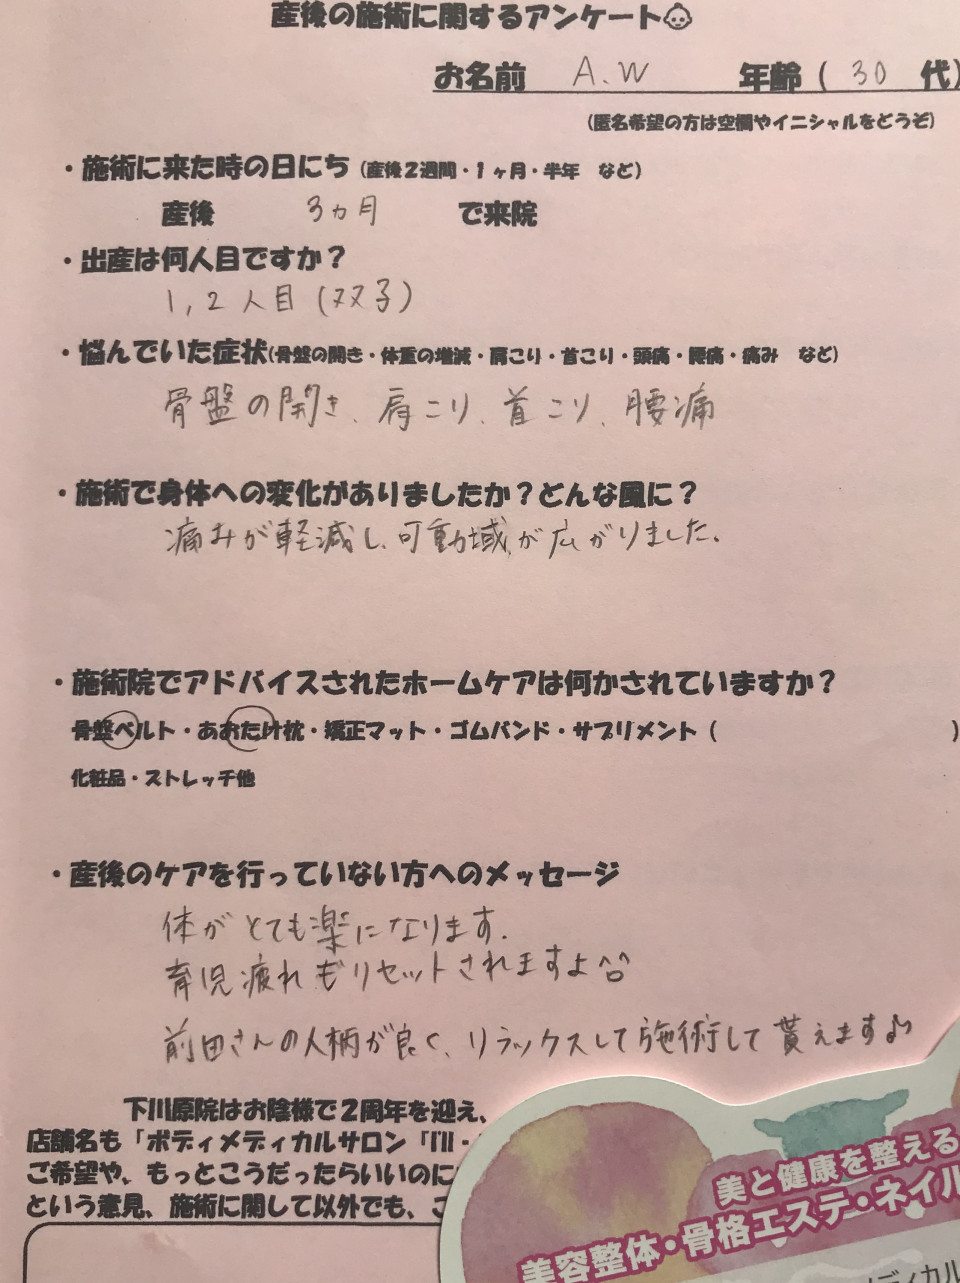 産後の施術に関するアンケート
お名前 A.W 年齢( 30 代)
(匿名希望の方は空欄やイニシャルをどうぞ)
・施術に来た時の日にち(産後2週間・1ヶ月・半年 など)
産後 3ヵ月 で来院
・出産は何人目ですか?
1,2人目(双子)
・悩んでいた症状(骨盤の開き・体重の増減・肩こり・首こり・頭痛・腰痛・痛み など)
骨盤の開き、肩こり、首こり、腰痛
・施術で身体への変化がありましたか?どんな風に?
痛みが軽減し、可動域が広がりました。
・施術院でアドバイスされたホームケアは何かされていますか?
骨盤ベルト・あおたけ枕・矯正マット・ゴムバンド・サプリメント( )
化粧品・ストレッチ他
・産後のケアを行っていない方へのメッセージ
体がとても楽になります.
育児疲れもリセットされますよ^o^
前田さんの人柄が良く、リラックスして施術して貰えます♪
下川原院はお陰様で2周年を迎え、
店舗名も「ボディメディカルサロン「I'll・
ご希望や、もっとこうだったらいいのに
という意見、施術に関して以外でも、
美と健康を整える
美容整体・骨格エステ・ネイル
ディカル